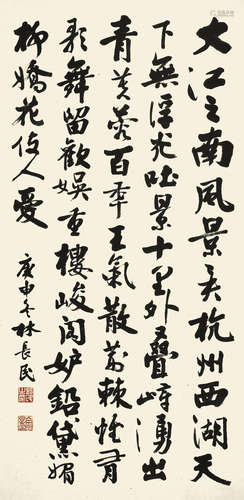 大江之南風景美杭州西湖天
下無浮光吐景十里外疊嶂湧出
青芙蓉百年王氣散荊棘惟有
歌舞留歡娛重樓峻閣妒鉛黛媚
柳嬌花使人愛
庚申冬林長民